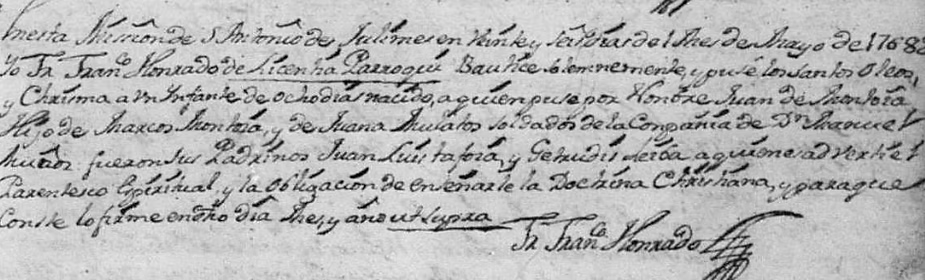 En esta Mission de S Antonio de Julimes en Veinte y seis dias del Mes de Mayo de 1768
Yo Fr Franco Honrado de Licentia Parroqui Bautice solemnemente, y puse los santos Oleos,
y Chrisma a vn Infante de ocho dias nacido, a quien puse por Nombre Juan de Montoia
Hijo de Marcos Montoia, y de Juana Mulatos soldados de la Compañia de Dn Manuel
Muños fueron sus Padrinos Juan Luis tafoia, y Getrudis a quienes adverti el
Parentesco Espiritual, y la obligacion de enseñarle la Doctrina Christiana, y para que
Conste lo firme en dho dia Mes, y año ut supra
Fr Franco Honrado